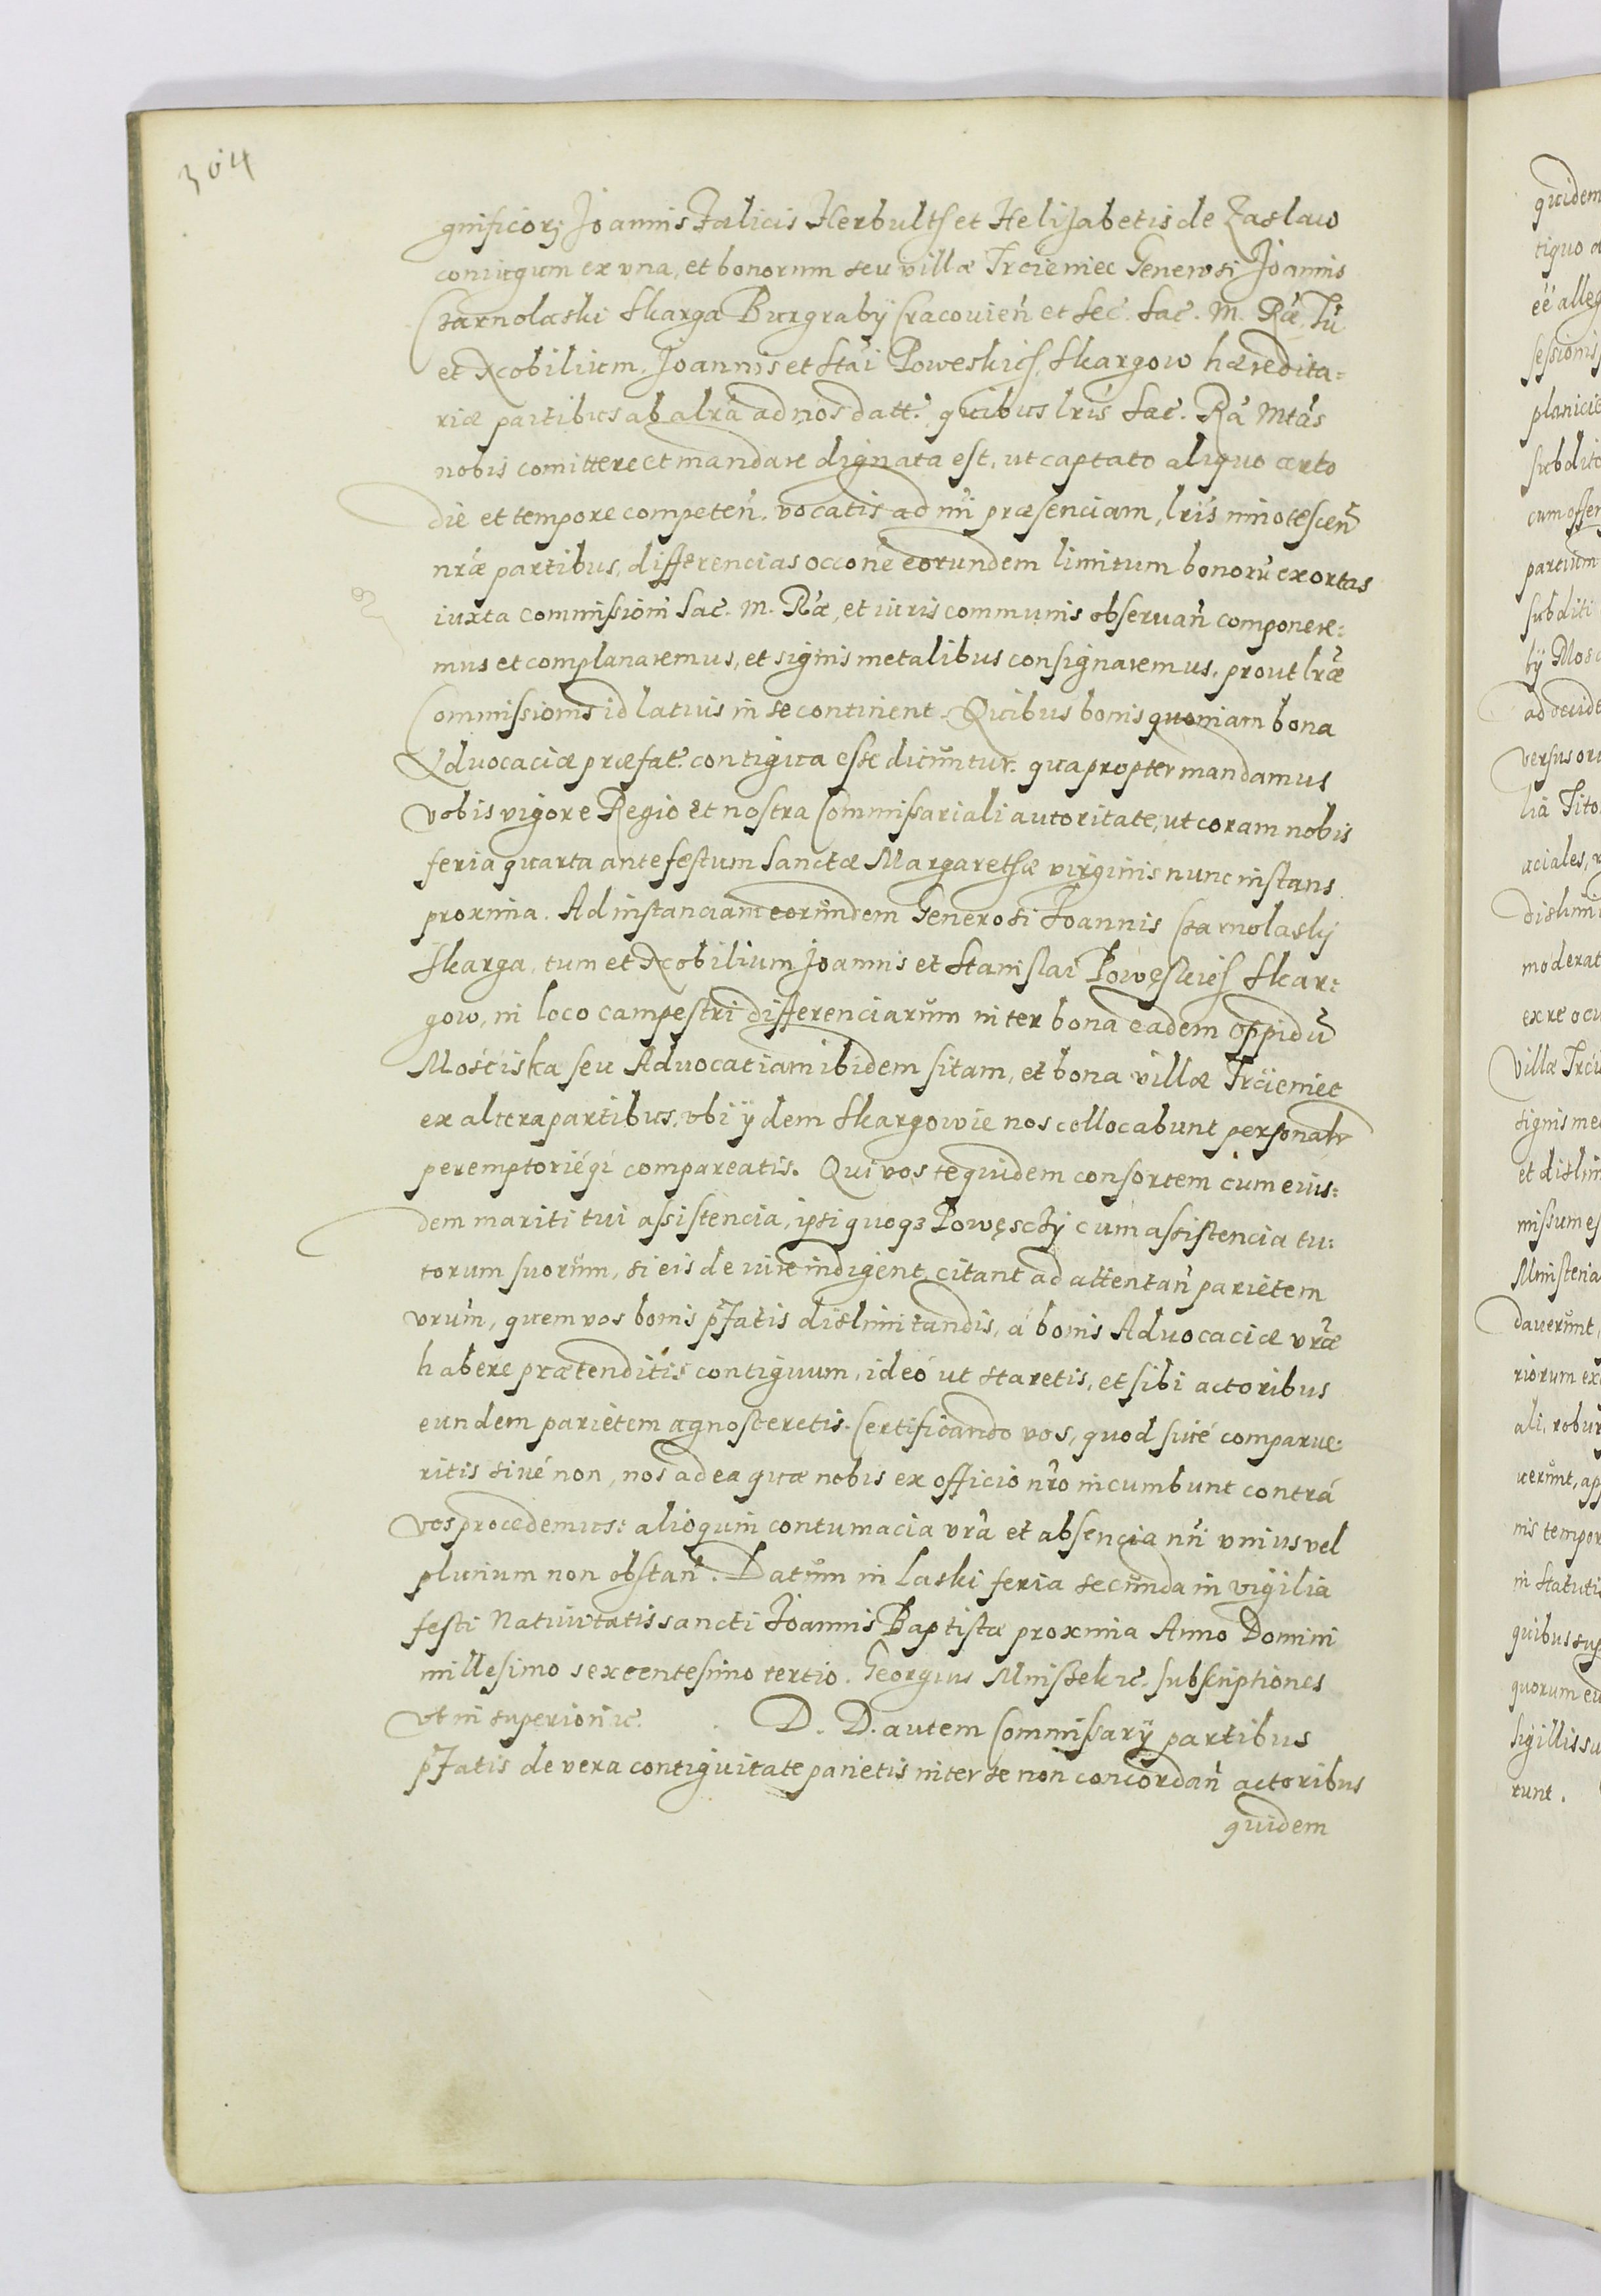 304
gnificorȝ Joannis Fælicis Herbulth et Helizabetis de Zaslaw
coniugum ex vna, et bonorum seu villæ Trcieniec Generosi Joannis
Czarnolaski Skarga Burgrabÿ Cracovień et Sec. Sac. M. Ræ, Tū
et Nobilium Joannis et Stăi Poweskich Skargow hæredita=
riæ partibus ab altrā ad nos datt. quibus lrīs Sac. Rā Mtās
nobis comittere et mandare dignata est, ut captato aliquo certo
die et tempore competeń. vocatis ad nr̄i præsenciam, lrīs innotesceń
nrǣ partibus, differencias occōne eorundem limitum bonorū exortas
iuxta Commissiom̄ Sac. M. Ræ, et iuris communis obseruań componere=
mus et complanaremus, et signis metalibus consignaremus, prout lrǣ
Commissionis id latius in se continent. Quibus bonis quoniam bona
Aduocaciæ præfat. contigua esse dicuntur. quapropter mandamus
vobis vigore Regio et nostra Commissariali autoritate, ut coram nobis
feria quarta ante festum Sanctæ Margarethæ virginis nunc instans
proxima. Ad instanciam eorundem Generosi Joannis Czarnolaskÿ
Skarga, tum et Nobilium Joannis et Stanislai Powęskich Skar=
gow, in loco campestri differenciarum inter bona eadem oppidū
Mościska seu Aduocatiam ibidem sitam, et bona villæ Trcieniec
ex altera partibus, vbi ÿdem Skargowie nos collocabunt personalr
peremptorieqȝ compareatis. Qui vos te quidem consortem cum eius=
dem mariti tui assistencia, ipsi quoqȝ Powęsckÿ cum assistencia tu=
torum suorum, si eis de iure indigent, citant ad attentań parietem
vrūm, quem vos bonis pfatis dislimitandis, á bonis Aduocaciæ vrǣ
habere prætenditis contiguum, ideó ut staretis, et sibi actoribus
eundem parietem agnosceretis. Certificando vos, quod siué comparue=
ritis siué non, nos ad ea quæ nobis ex officio nrō incumbunt contrá
vos procedemus: alioquin contumacia vrā et absencia nr̄i vnius vel
plurium non obstań. Datum in Laski feria secunda in vigilia
festi Natiuitatis sancti Joannis Baptistæ proxima Anno Domini
millesimo sexcentesimo tertio. Georgius Mniszek ić. subscriptiones
vt in superiori ić. D. D. autem Commissarÿ partibus
pfatis de vera contiguitate parietis inter se non concordań actoribus
quidem